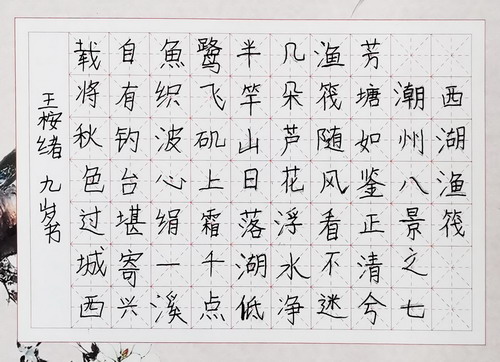 西湖渔筏
潮州八景之七
芳塘如鉴正清兮
渔筏随风看不迷
几朵芦花浮水净
半竿山日落湖低
鹭飞矶上霜千点
魚织波心绢一溪
自有钓台堪寄兴
载将秋色过城西
王桉绪 九岁书